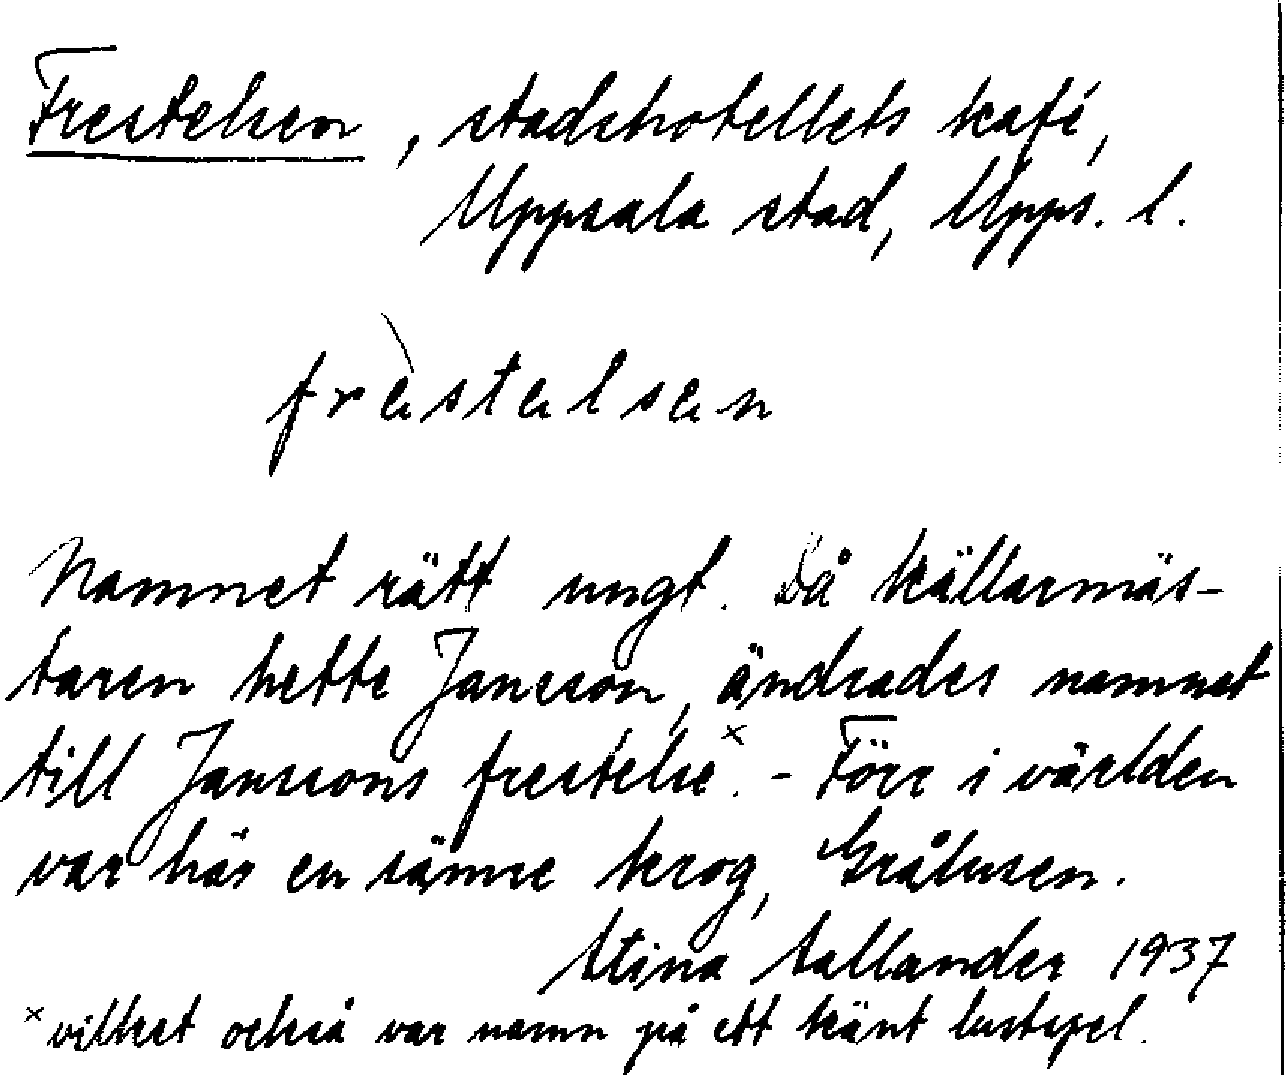 Frestelsen, stadshotellets kafé,
Uppsala stad, Upps. l.
frèstelsen
Namnet rätt ungt. Då källarmäs-
taren hette Jansson, ändrades namnet
till Janssons frestelse.ˣ - Förr i världen
var här en sämre krog, Grålusen.
Stina Sallander 1937
ˣ vilket också var namn på ett känt lustspel.